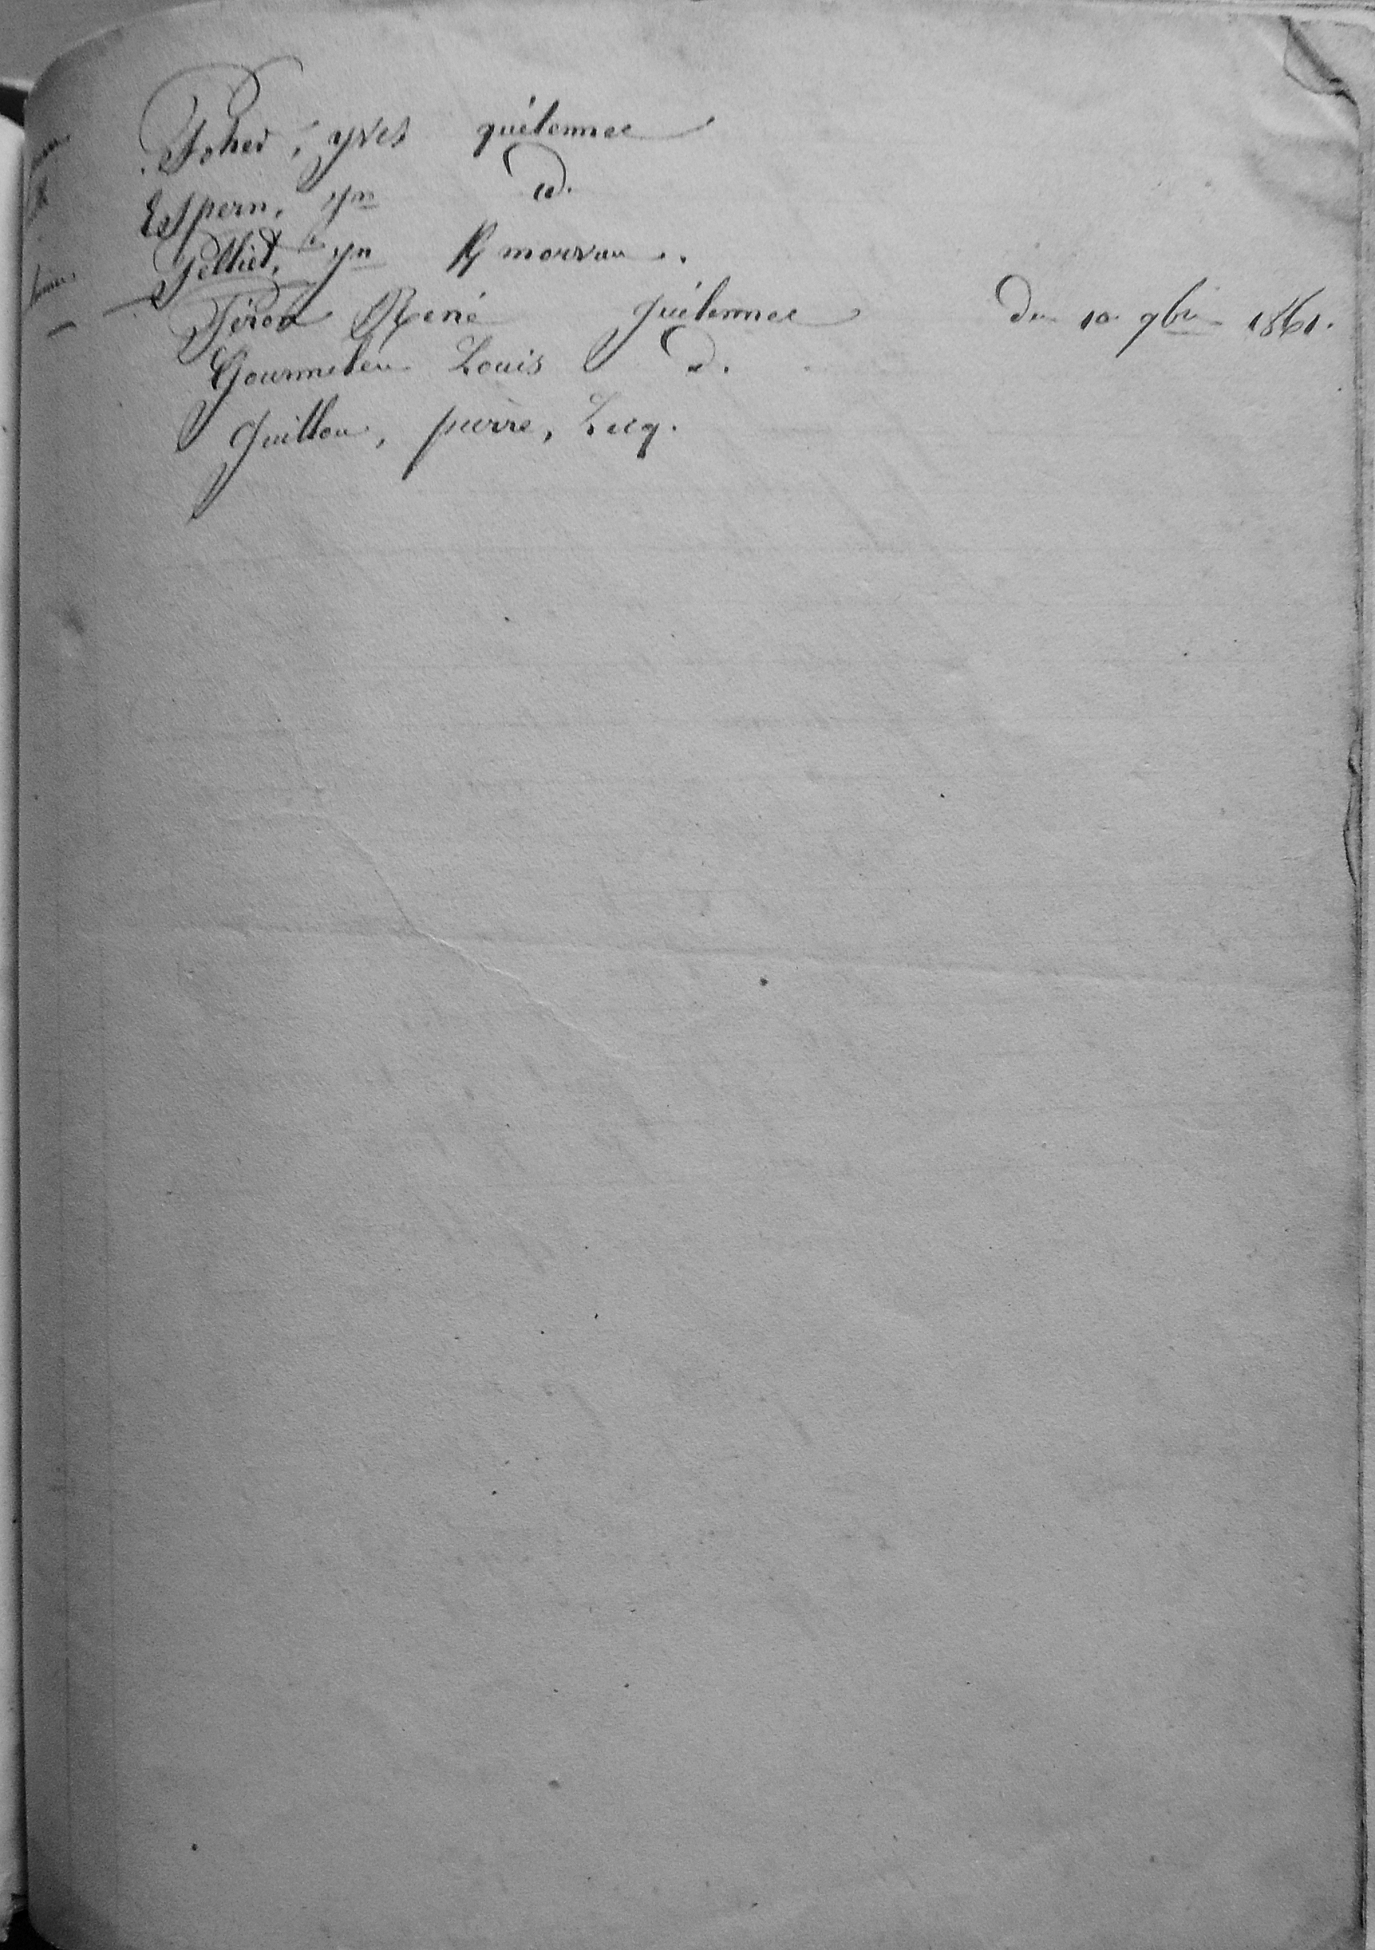 Foher, yves quélennec
Espern, yn d.
Pelliet, yn K morvan.
Péron René quélennec du 10 9bre 1861.
Gourmelen Louis d.
Guillou, pierre, Lecq.